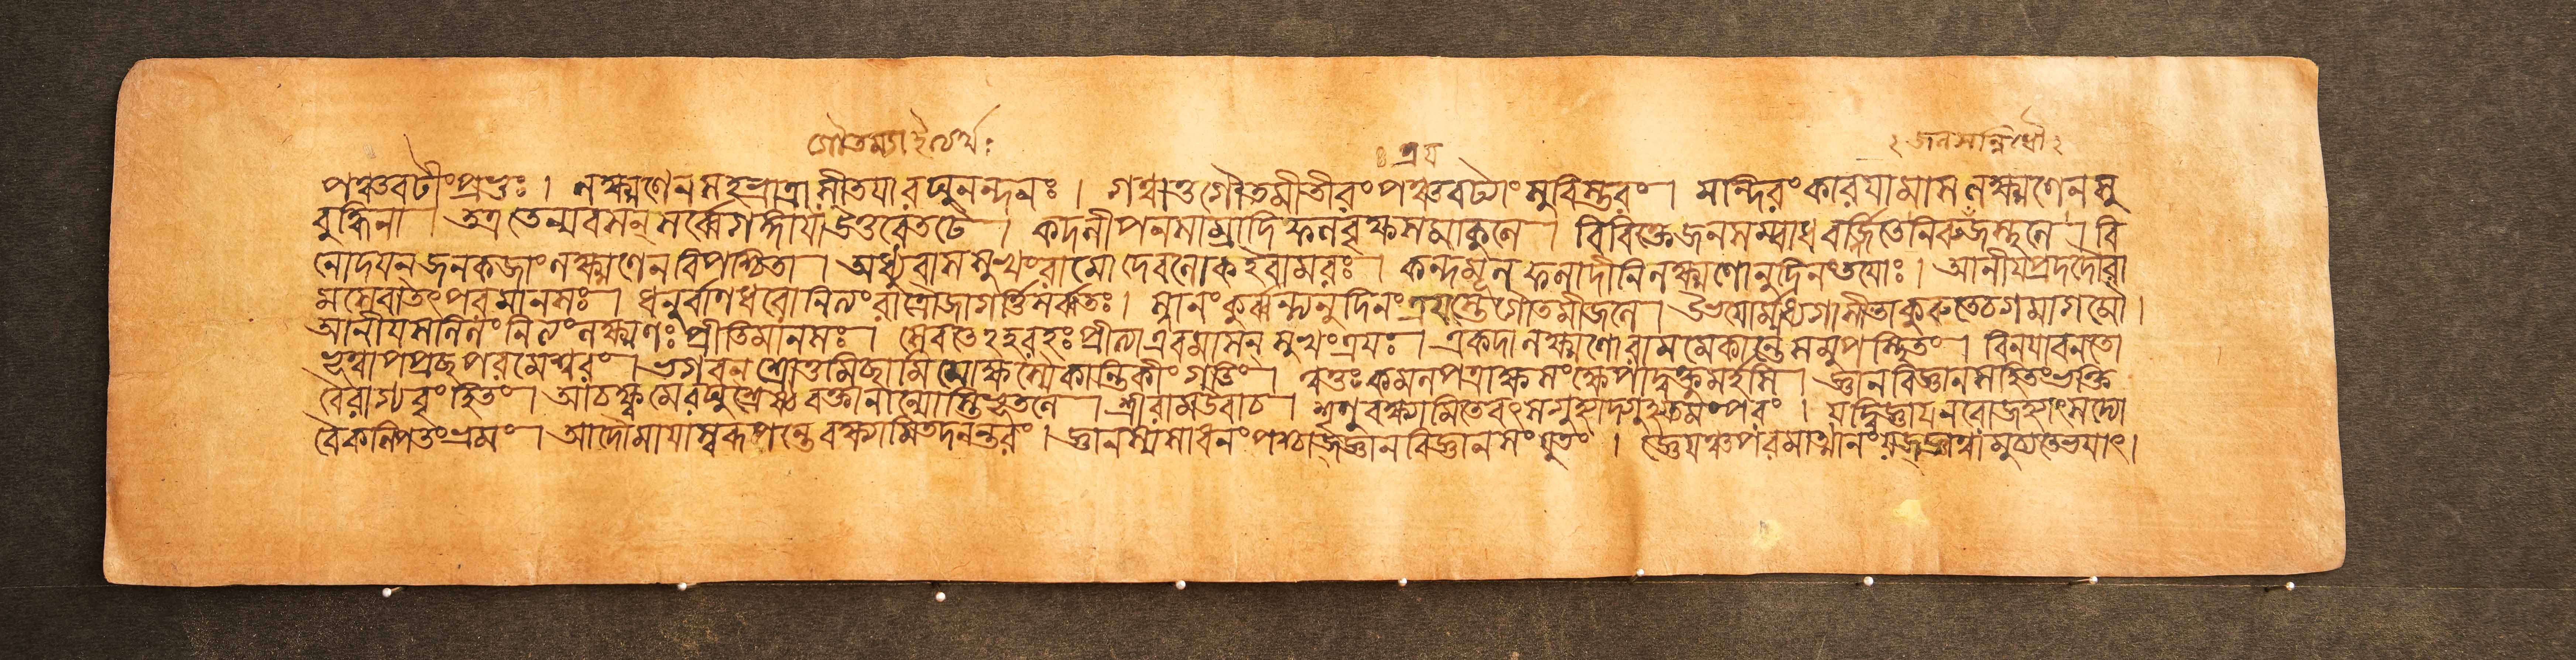 গৌতম্যা ইত্যর্থঃ
ত্রয় ২ জনসন্নিধৌ ২
পঞ্চবটীংপ্রভুঃ । লক্ষ্মণেনসহভ্রাত্রাসীতয়ারঘুনন্দনঃ । গত্বাতুগৌতমীতীরংপঞ্চবট্যাংসুবিস্তরং । মন্দিরংকারয়ামাসলক্ষ্মণেনসু
বুদ্ধিনা । তত্র তেন্যবসন্ সর্ব্বেগঙ্গায়াউত্তরেতটে । কদলীপনসাম্রাদিফলবৃক্ষসমাকুলে । বিবিক্তেজনসম্বাধবর্জ্জিতেনিরুজস্থলে । বি
নোদয়ন্ জনকজাংলক্ষ্মণেনবিপশ্চিতা । অধ্যুবাসসুখংরামোদেবলোকইবামরঃ । কন্দমূলফলাদীনিলক্ষ্মণোনুদিনংতয়োঃ । আনীয়প্রদদৌরা
মসেবাতৎপরমানসঃ । ধনুর্বাণধরোনিত্যংরাত্রৌজাগর্ত্তিসর্ব্বতঃ । স্নানংকুর্ব্বন্ত্যনুদিনংত্রয়স্তেগৌতমীজলে । উভয়োর্ম্মধ্যগাসীতাকুরুতেচগমাগমৌ ।
আনীয়সলিলংনিত্যংলক্ষ্মণঃপ্রীতিমানসঃ । সেবতেঽহরহঃপ্রীত্যাএবমাসন্ সুখংত্রয়ঃ । একদালক্ষ্মণোরামমেকান্তেসমুপস্থিতং । বিনয়াবনতো
ভূত্বাপপ্রচ্ছপরমেশ্বরং । ভগবন্ শ্রোতুমিচ্ছামিমোক্ষস্যৈকান্তিকীংগতিং । ত্বত্তঃকমলপত্রাক্ষসংক্ষেপাদ্বক্তুমর্হসি । জ্ঞানংবিজ্ঞানসহিতংভক্তি
বৈরাগ্যবৃংহিতং । আচক্ষ্বমেরঘুশ্রেষ্ঠবক্তানান্যোস্তিভূতলে । শ্রীরামউবাচ । শৃণুবক্ষ্যামিতেবৎসগুহ্যাদ্গুহ্যতমংপরং । যদ্বিজ্ঞায়নরোজহ্যাৎসদ্যো
বৈকল্পিতংভ্রমং । আদৌমায়াস্বরূপন্তেবক্ষ্যামিতদনন্তরং । জ্ঞানস্যসাধনংপশ্চাজ্জ্ঞানবিজ্ঞানসংযুতং । জ্ঞেয়ঞ্চপরমাত্মানংযজ্জ্ঞাত্বামুচ্যতেভয়াৎ ।